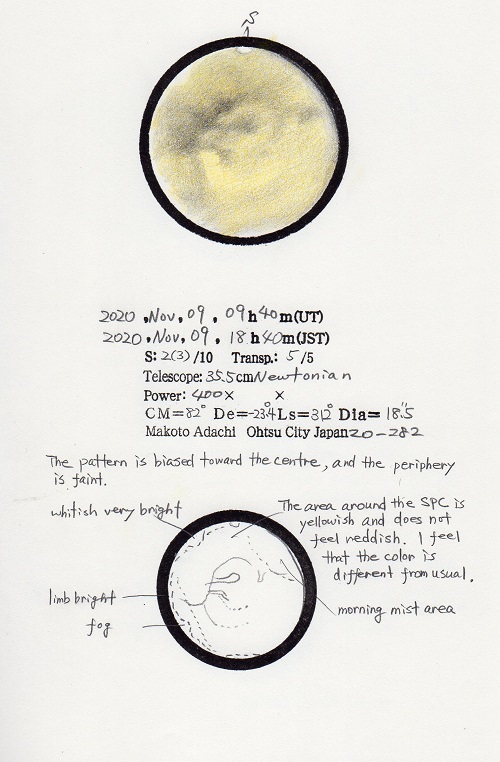 S
2020, Nov, 09, 09h40m(UT)
2020, Nov, 09, 18h40m(JST)
S: 2(3)/10 Transp.: 5/5
Telescope: 35.5cm Newtonian
Power: 400× ×
CM=82° De=-23.4° Ls=312° Dia=18.″5
Makoto Adachi Ohtsu City Japan 20-282
The pattern is biased toward the centre, and the periphery
is faint.
whitish very bright
The area around the SPC is
yellowish and does not
feel reddish. I feel
that the color is
different from usual.
limb bright
fog
morning mist area